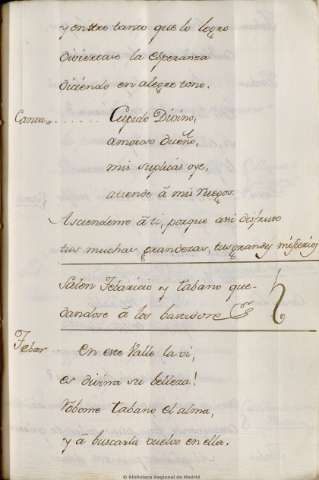 y entre tanto que lo logro
diviertase la esperanza
diciendo en alegre tono.
Canta...... Cupido Divino,
amoroso dueño,
mis suplicas oye,
atiende à mis ruegos.
Asciendeme à ti, porque asi disfruto
tus muchas grandezas, tus grandes misterios
Salen Febricio y Tabano que-
dandose à los bastidores
Febri. En este Valle la vi,
es divina su belleza!
Robome Tabano el alma,
y à buscarla vuelvo en ella.
© Biblioteca Regional de Madrid